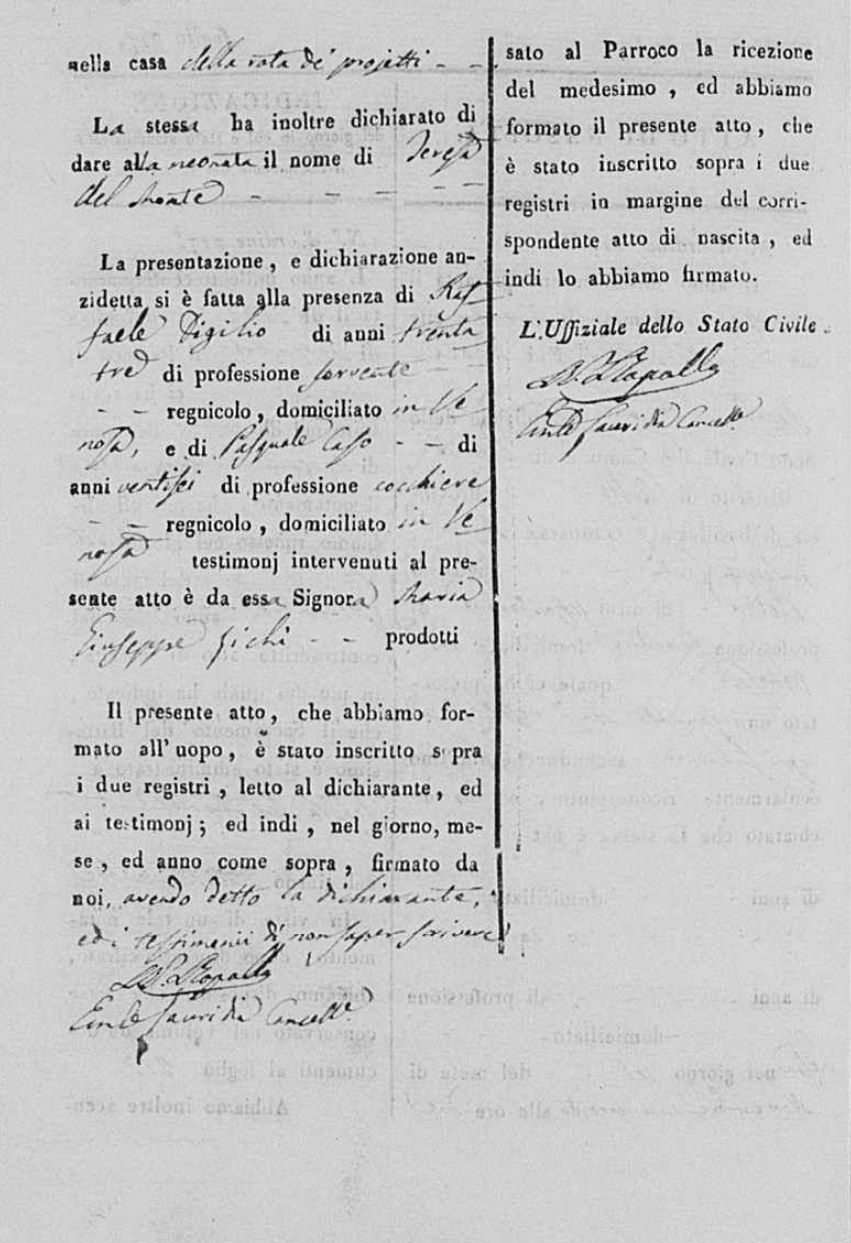 nella casa della rota de' projetti - - .
La stessa ha inoltre dichiarato di
dare alla neonata il nome di Teresa
del Monte - - - - -
La presentazione, e dichiarazione an-
zidetta si è fatta alla presenza di Raf
faele Digilio di anni trenta
tre di professione servente
- - regnicolo, domiciliato in Ve
nosa, e di Pasquale Caso - - di
anni ventisei di professione cocchiere
- - regnicolo, domiciliato in Ve
nosa testimonj intervenuti al pre-
sente atto è da essa Signora Maria
Giuseppe Fichi - - prodotti
Il presente atto, che abbiamo for-
mato all' uopo, è stato inscritto sopra
i due registri, letto al dichiarante, ed
ai testimonj; ed indi, nel giorno, me-
se, ed anno come sopra, firmato da
noi, avendo detto la dichiarante,
ed i testimonii di non saper scrivere
Rapolla
Cancell.e
sato al Parroco la ricezione
del medesimo, ed abbiamo
formato il presente atto, che
è stato inscritto sopra i due
registri in margine del corri-
spondente atto di nascita, ed
indi lo abbiamo firmato.
L'Uffiziale dello Stato Civile
Rapolla
Cancell.e